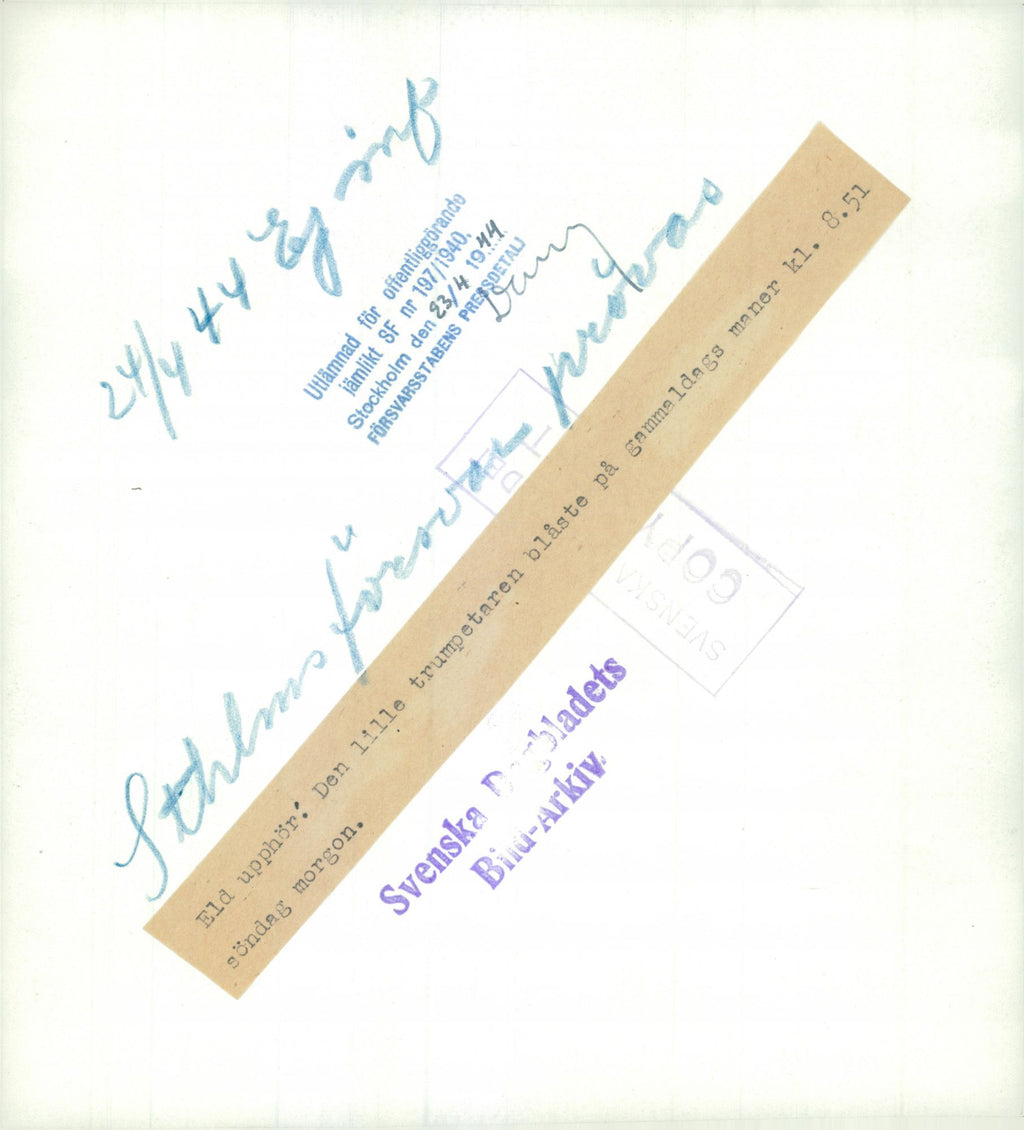 24/4 44 Ej inf
Utlämnad för offentliggörande
jämlikt SF nr 197/1940.
Stockholm den 23/4 1944
FÖRSVARSSTABENS PRESSDETALJ
Sthlms försvar prövas
Eld upphör: Den lille trumpetaren blåste på gammaldags maner kl. 8.51
söndag morgon.
SVENSKA
COPY
Svenska Dagbladets
Bild-Arkiv.